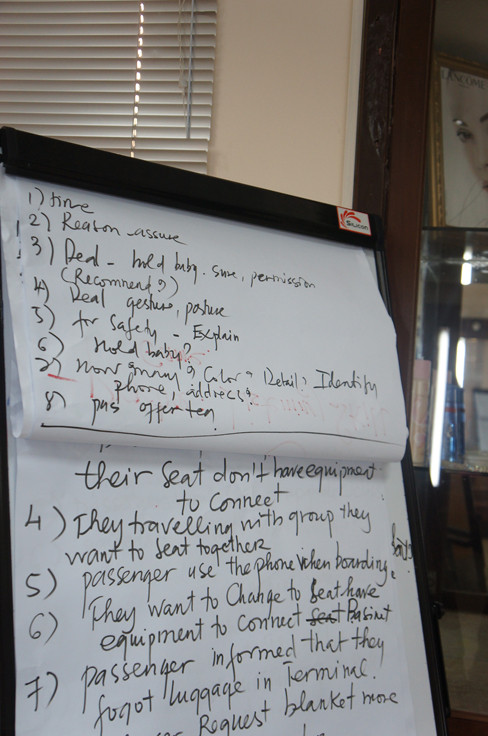 LANCOME
Silicon
1) time
2) Reason - assure
3) Deal - hold baby. sure, permission
(Recommend?)
4) Deal gesture, posture
5) for Safety - Explain
6) Hold baby?
7) How many? Color? Detail? Identify
phone, address?
8) pas offer tea
their seat don't have equipment
to connect
4) They travelling with group they
want to seat together
5) passenger use the phone when boarding.
6) They want to change to seat have
equipment to connect seat Basinit
7) passenger informed that they
fogot luggage in Terminal.
Request blanket more